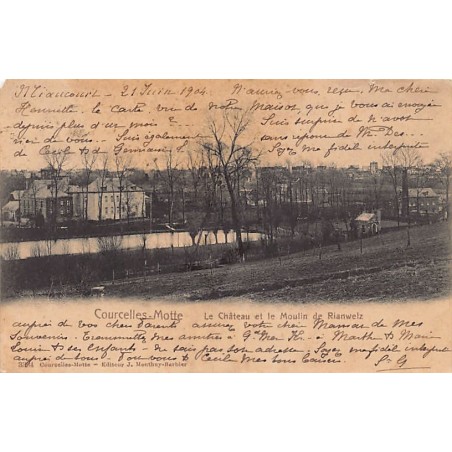 Miaucourt - 21 Juin 1904. N'auriez-vous, reçu, Ma chère
Henriette, la carte, vue de notre Maison, que je vous ai envoyée
depuis plus d'un mois ? Suis surpris de n'avoir
rien de vous... Suis également sans réponse de Mr Des...
de Cécile et de Germain Soyez ma fidèle interprète
Courcelles-Motte Le Château et le Moulin de Rianwelz
auprès de vos chers parents. assurez votre chère Maman de mes
souvenirs. Transmettez mes amitiés à Gd Mère à Marthe & Marie
Louise & ses Enfants - ne sais pas son adresse, Soyez ma fidèle interprète
auprès de tous. Pour vous & Cécile Mes bons baisers.
Courcelles-Motte — Editeur J. Monthuy-Barbier